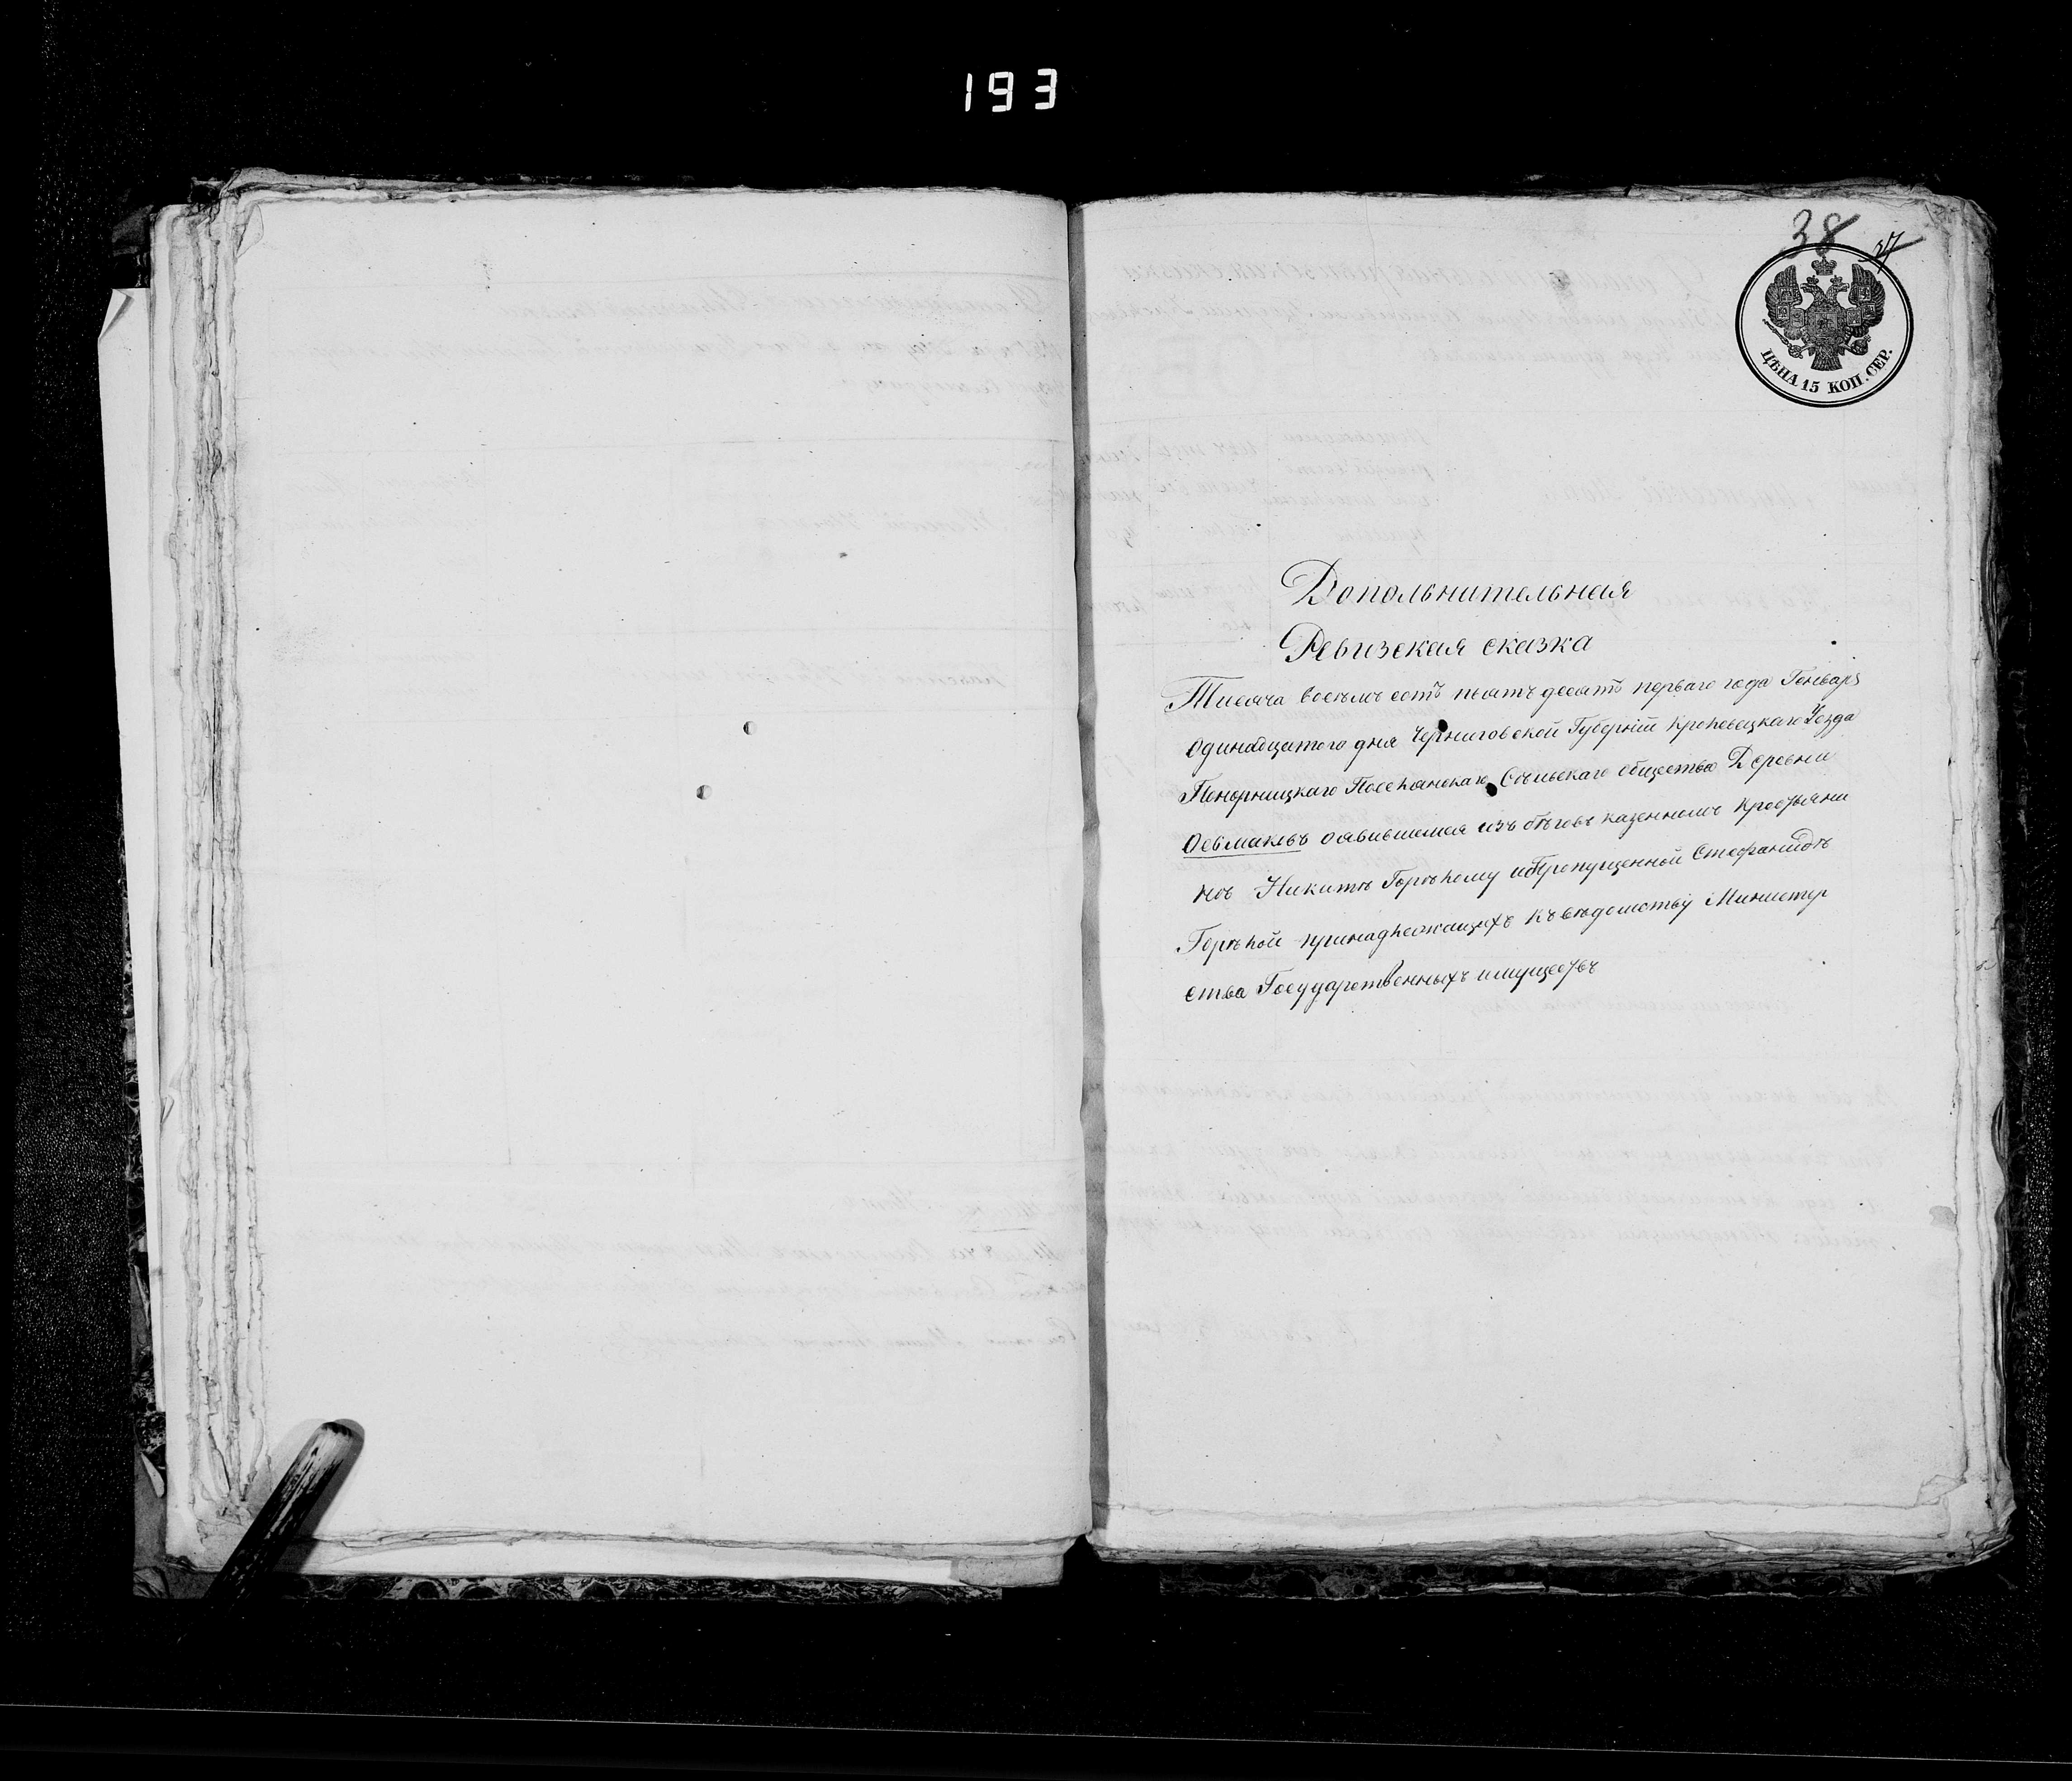 193
38 37
ЦѢНА 15 КОП. СЕР.
Допольнительная
Ревизская сказка
Тисяча восемъ сотъ пьятъ десятъ перваго года Генваря
одинадцатого дня Черниговской Губерніи Кролевецкаго Уезда
Понорницкаго Посельянскаго Сельскаго общества Деревни
Осьмаковъ оявившемся изъ беговъ казенномъ Кресьяни
не Никите Горелому и Пропущенной Стефаниде
Горелой принадлежащихъ къ ведомству Министер
ства Государственныхъ имуществъ